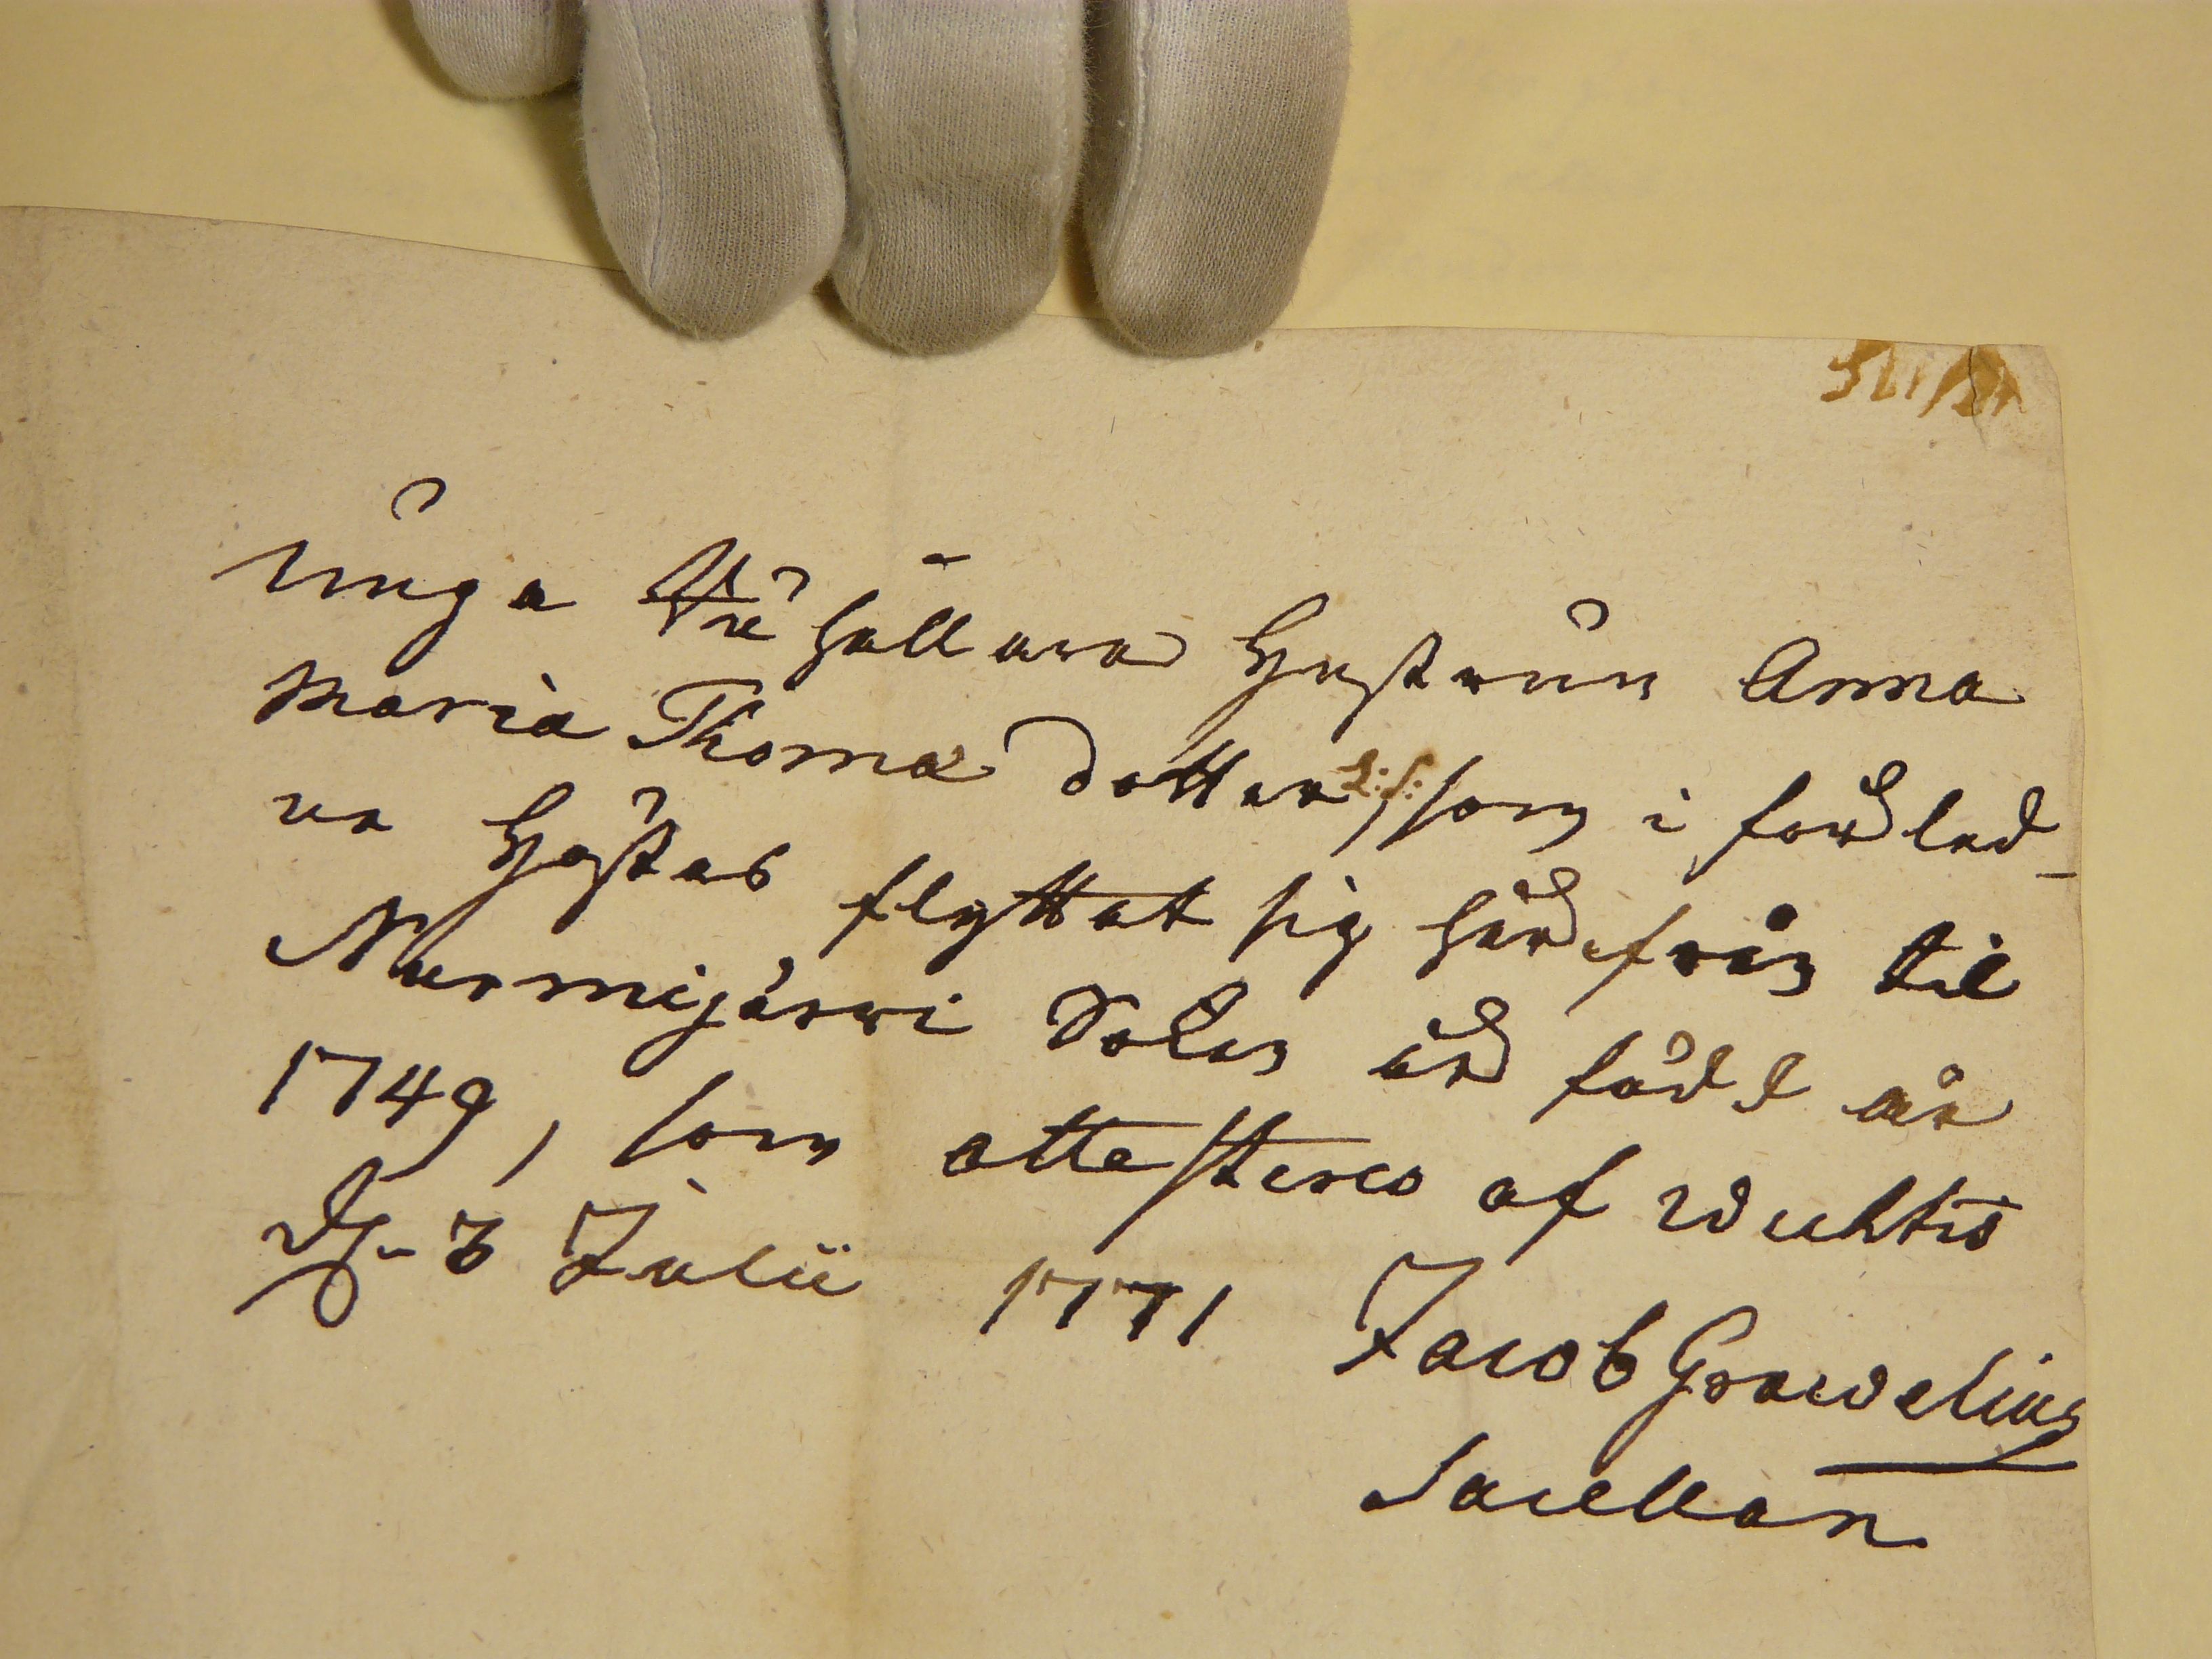 unga Hushållares Hustrun Anna
Maria Thomæ dotter, som i förled-
ne Höstas flyttat sig härifrån til
Nurmijärvi Sokn är född år
1749, som attesteres af Wichtis
d. 3 Julii 1771 Jacob Grawelius
Sacellan